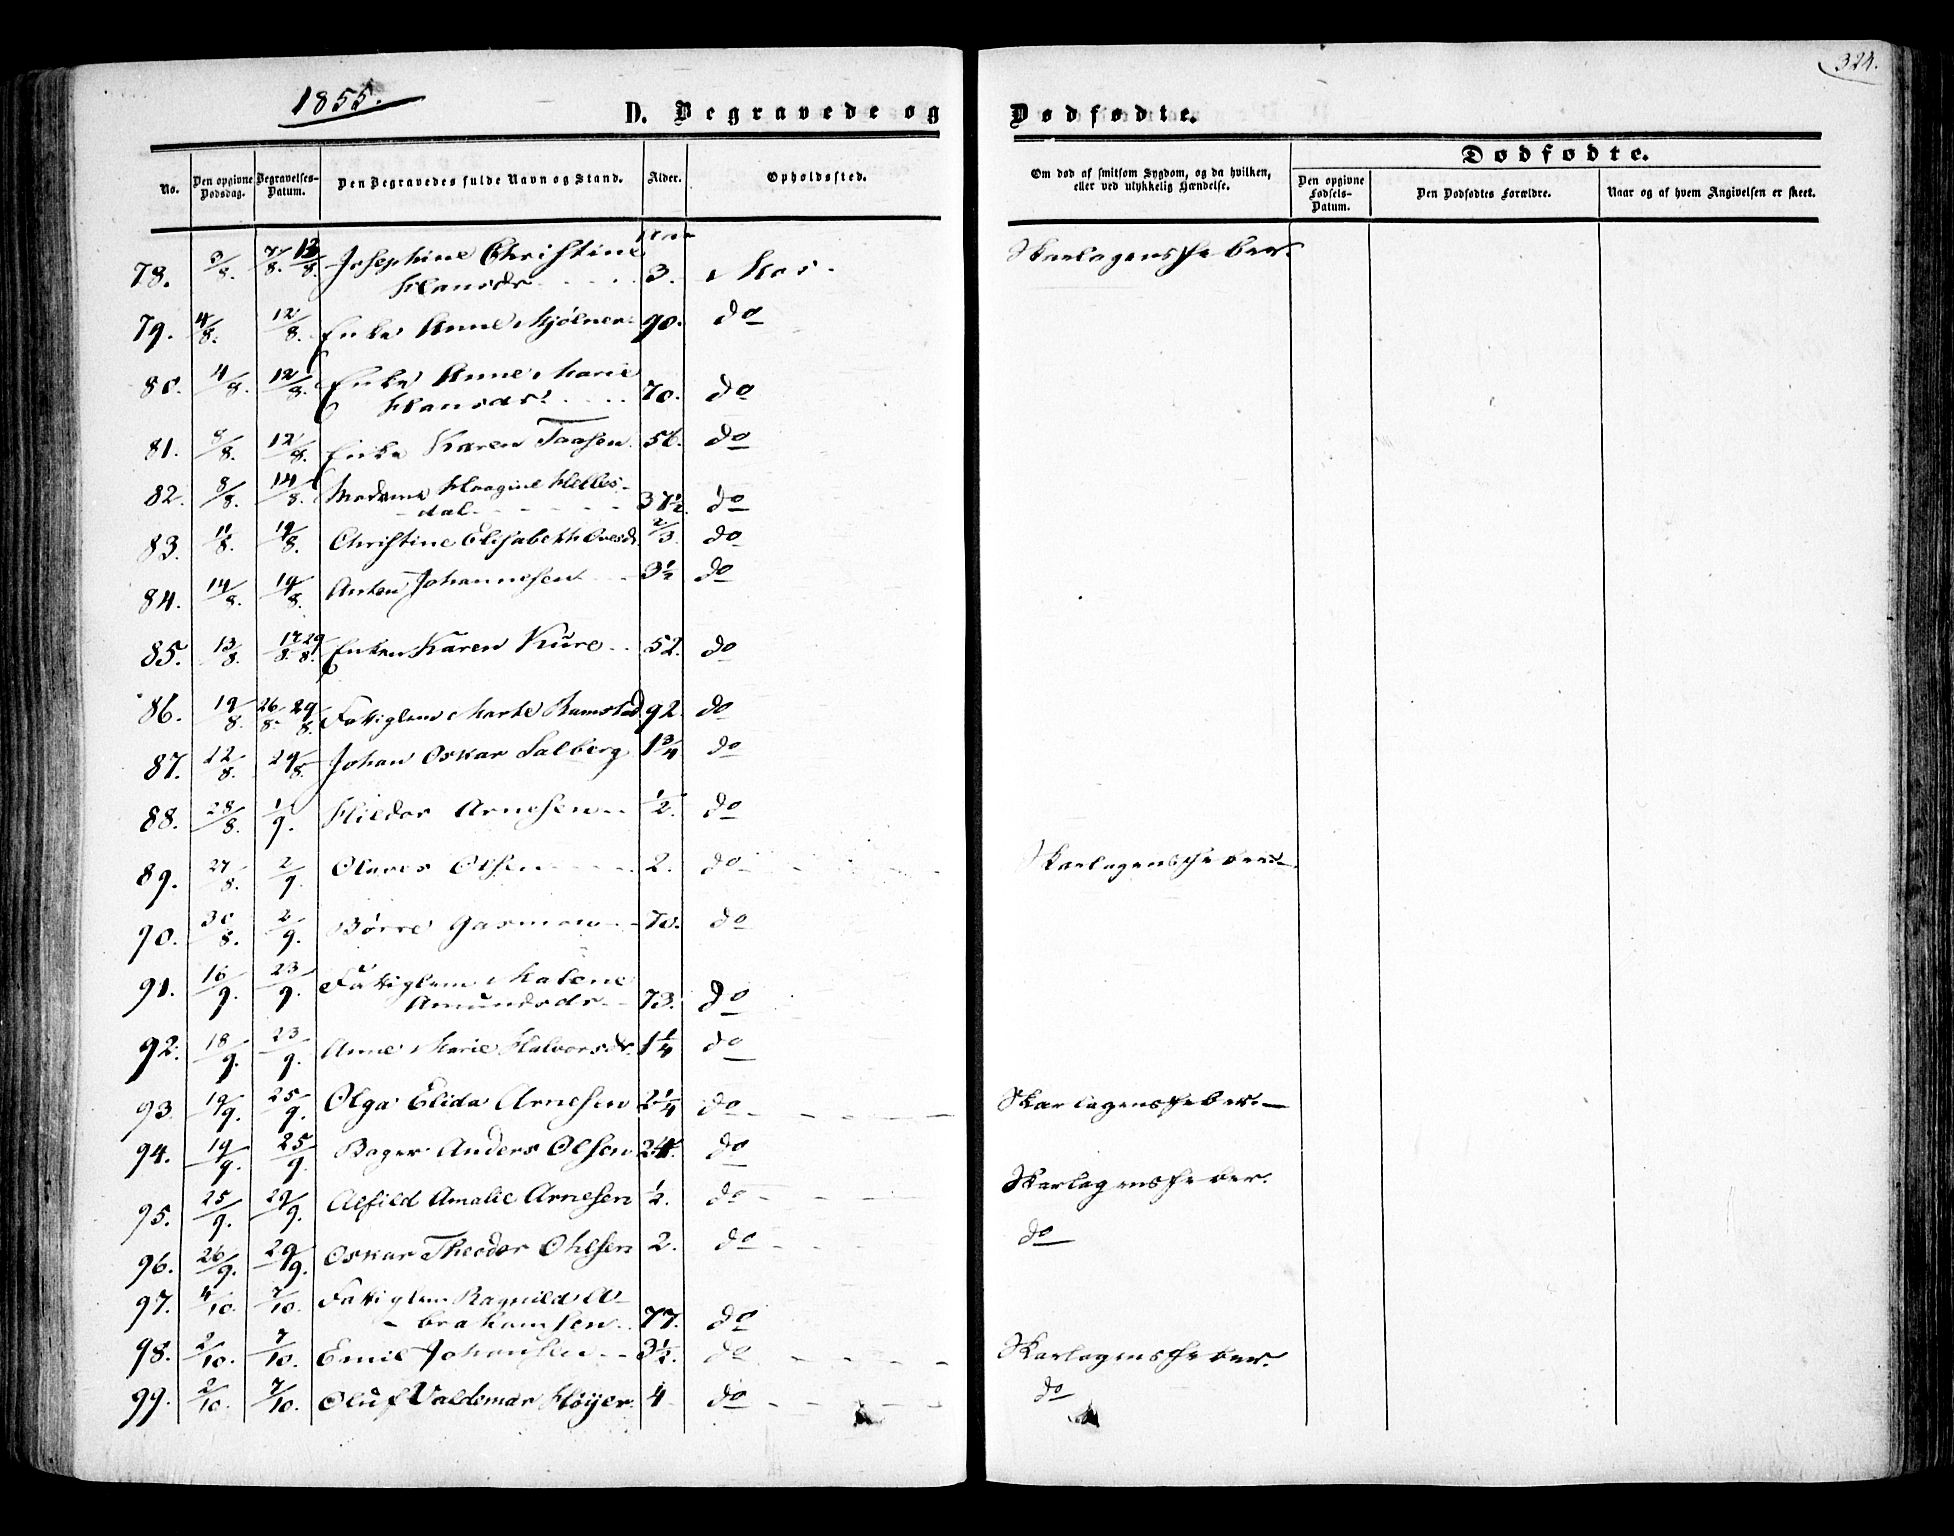 1855.
324.
D. Begravede og Dødfødte.
No. Den opgivne Dødsdag. Begravelses-Datum. Den Begravedes fulde Navn og Stand. Alder. Opholdssted. Om død af smitsom Sygdom, og da hvilken, eller ved ulykkelig Hændelse.
Dødfødte.
Den opgivne Fødsels-Datum. Den Dødfødtes Forældre. Naar og af hvem Angivelsen er skeet.
78. 3/8. 7/8. 13/8. Josephine Christine 3. Mos. Skarlagensfeber.
Hansdr
79. 4/8. 12/8. Enke Anne Mjølner 90. do
80. 4/8. 12/8. Enke Anne Marie
Hansdr. 70. do
81. 8/8. 12/8. Enke Karen Taasen 56. do
82. 8/8. 14/8. Madame Haagine Helles-
dal 37 1/2. do
83. 1/8. 19/8. Christine Elisabeth Ovesdr. 2/3. do
84. 14/8. 19/8. Anton Johannesen 3 1/2 do
85. 13/8. 17/8. 29/8. Enken Karen Kure 52. do
86. 19/8. 26/8. 29/8. Fattiglem Marte Ramstad 92. do
87. 22/8. 29/8. Johan Oskar Salberg 1 3/4 do
88. 28/8. 1/9. Hildor Arnesen 1/2. do
89. 27/8. 2/9. Olaves Olsen 2. do Skarlagensfeber.
90. 30/8. 2/9. Børre Gasman 70. do
91. 16/9. 23/9. Fattiglem Malene
Amundsdr. 73. do
92. 18/9. 23/9. Anne Marie Halvorsdr. 1 1/4 do
93. 19/9. 25/9. Olga Elida Arnesen 2 1/4 do Skarlagensfeber.
94. 19/9. 25/9. Bager Anders Olsen 24. do
95. 25/9. 29/9. Alfild Amalie Arnesen 1/2. do Skarlagensfeber.
96. 26/9. 29/9. Oskar Theodor Ohlsen 2. do do
97. 4/10. 7/10. Fattiglem Ragnild A-
brahamsen 77. do
98. 2/10. 7/10. Emil Johansen 3 1/2. do Skarlagensfeber.
99. 2/10. 7/10. Oluf Valdemar Høijer. 4 do do